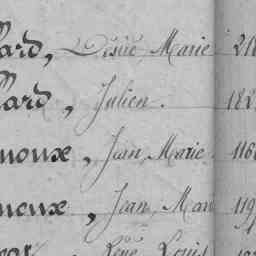 lard, Désiré Marie 218
lard, Julien. 182
moux, Jean Marie. 116
meux, Jean Mari 119
René Louis